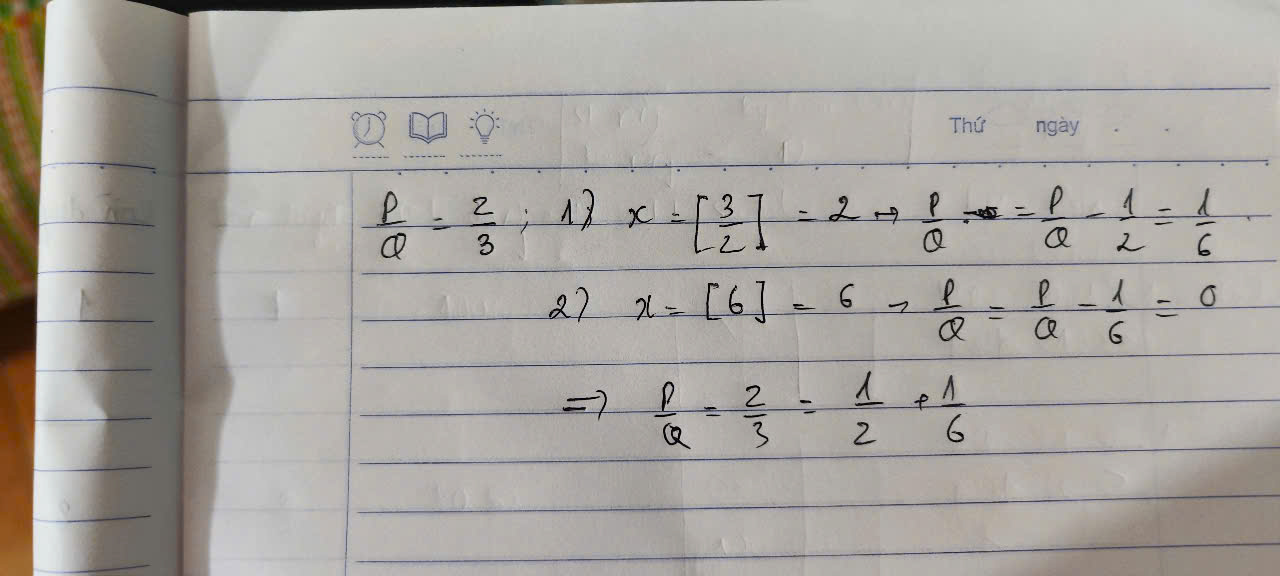 Thứ ngày . .
P/Q = 2/3 ; 1) x = [3/2] = 2 → P/Q = P/Q - 1/2 = 1/6 .
2) x = [6] = 6 → P/Q = P/Q - 1/6 = 0
=> P/Q = 2/3 = 1/2 + 1/6